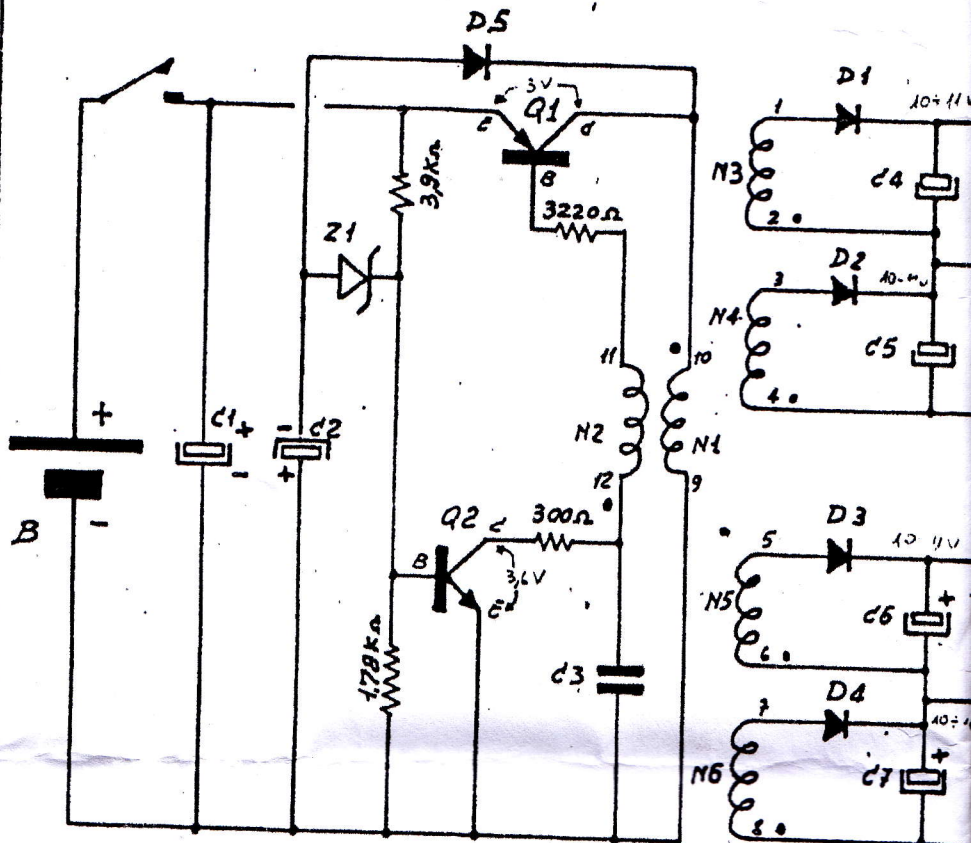 D5
3V
Q1
E
C
B
3,9KΩ
3220Ω
Z1
D1
10÷11V
1
N3
C4
2
D2
3
N4
C5
4
11
10
N2
N1
12
9
+
C1
+
-
-
C2
+
B
-
Q2
C
300Ω
B
3,6V
E
1,78KΩ
C3
D3
10 11V
5
N5
+
C6
6
D4
7
10÷1
+
N6
C7
8